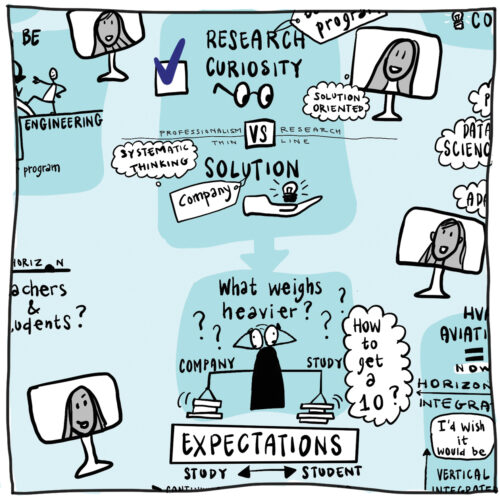 BE
ENGINEERING
program
program
RESEARCH
CURIOSITY
SOLUTION
ORIENTED
CO
PROFESSIONALISM
THIN
VS
RESEARCH
LINE
SYSTEMATIC
THINKING
SOLUTION
Company
DATA
SCIENC
ADA
HORIZON
achers
&
udents?
What weighs
heavier?
? ? ? ?
COMPANY
STUDY
HOW
to
get
a
10?
EXPECTATIONS
STUDY
STUDENT
HU
AVIATI
=
NOW
HORIZON
INTEGRA
I'd wish
it
would be
VERTICAL
INTEGRATE